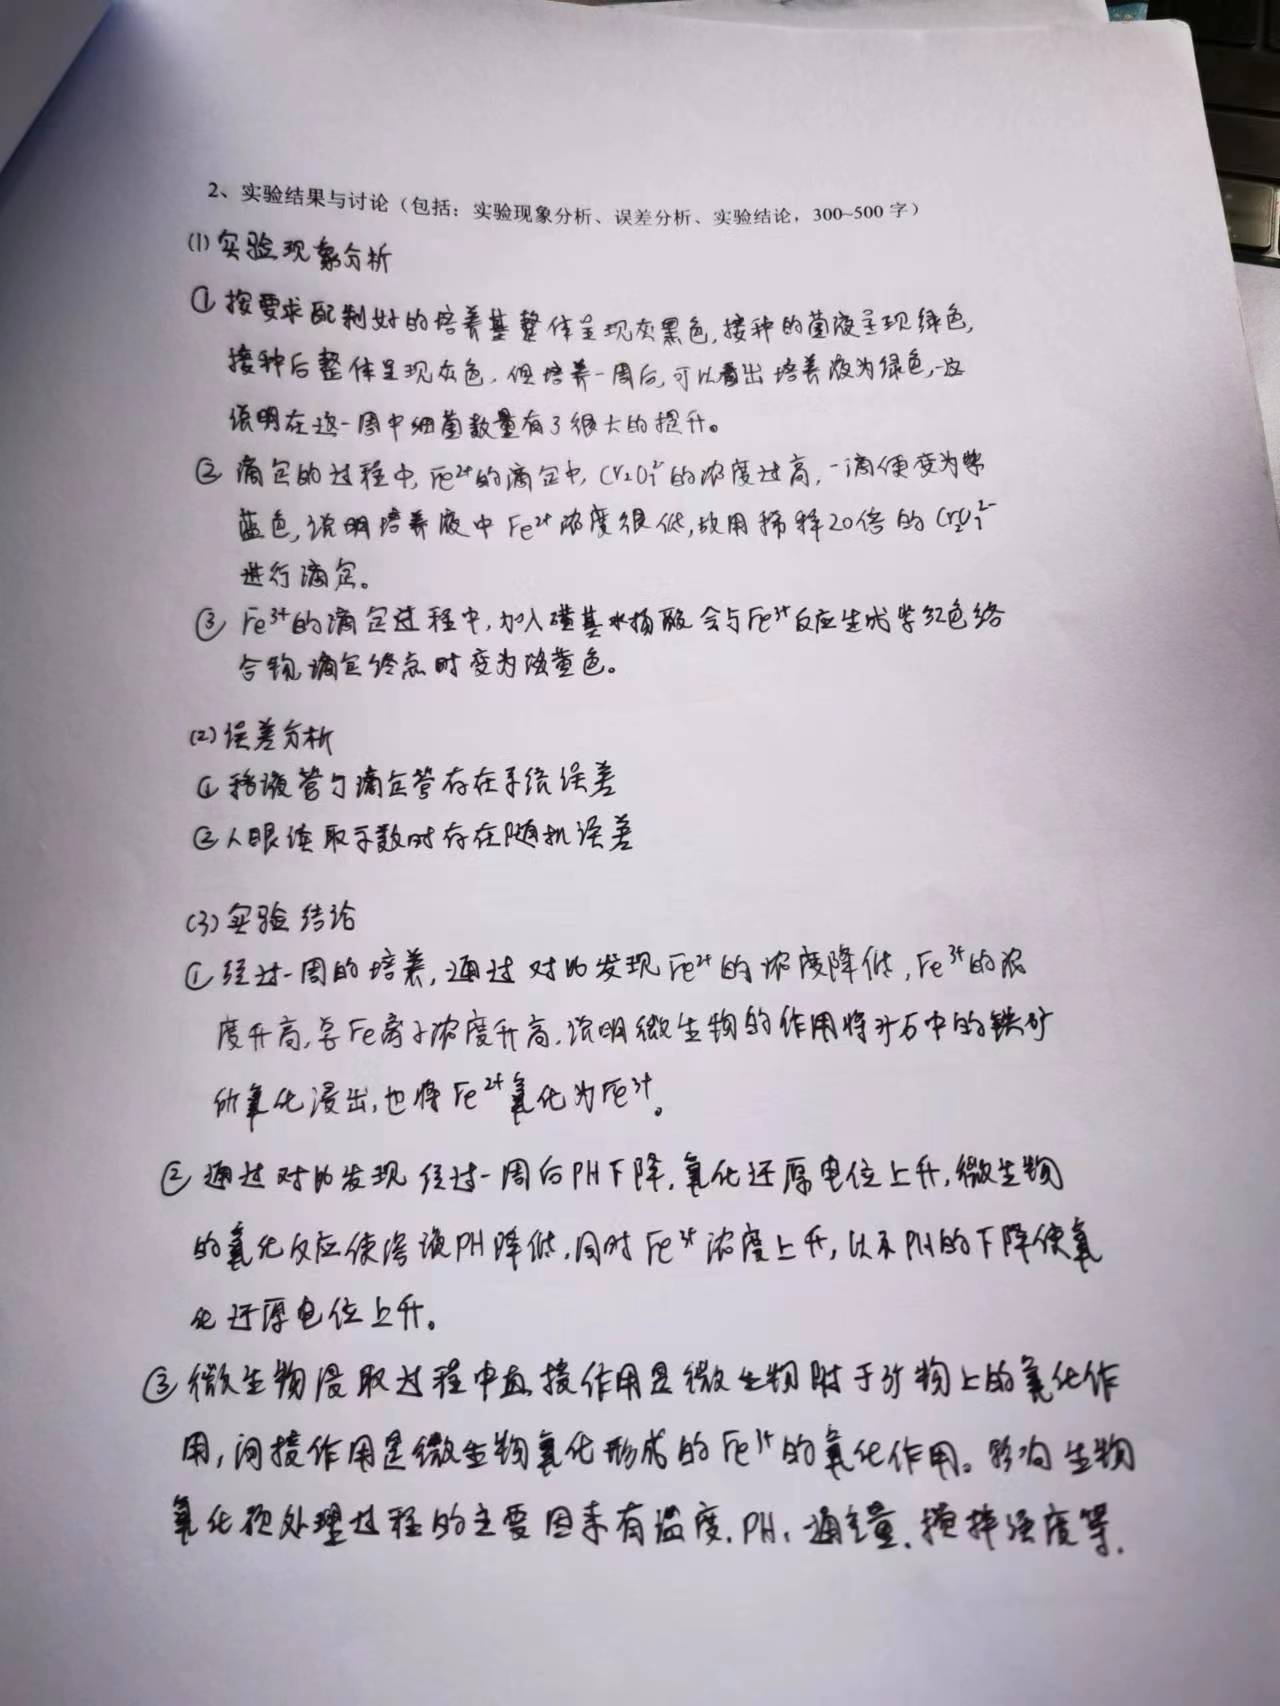 2、实验结果与讨论（包括：实验现象分析、误差分析、实验结论，300~500 字）
(1)实验现象分析
① 按要求配制好的培养基整体呈现灰黑色，接种的菌液呈现绿色，
接种后整体呈现灰色，但培养一周后，可以看出培养液为绿色，这
说明在这一周中细菌数量有了很大的提升。
② 滴定的过程中，Fe²⁺的滴定中，Cr₂O₇²⁻的浓度过高，一滴便变为紫
蓝色，说明培养液中Fe²⁺浓度很低，故用稀释20倍的Cr₂O₇²⁻
进行滴定。
③ Fe³⁺的滴定过程中，加入磺基水杨酸会与Fe³⁺反应生成紫红色络
合物，滴定终点时变为淡黄色。
(2)误差分析
① 移液管与滴定管存在系统误差
② 人眼读取示数时存在随机误差
(3)实验结论
① 经过一周的培养，通过对比发现Fe²⁺的浓度降低，Fe³⁺的浓
度升高，总Fe离子浓度升高，说明微生物的作用将矿石中的铁矿
所氧化浸出，也将Fe²⁺氧化为Fe³⁺。
② 通过对比发现经过一周后PH下降，氧化还原电位上升，微生物
的氧化反应使溶液PH降低，同时Fe³⁺浓度上升，以及PH的下降使氧
化还原电位上升。
③ 微生物浸取过程中直接作用是微生物附于矿物上的氧化作
用，间接作用是微生物氧化形成的Fe³⁺的氧化作用。影响生物
氧化预处理过程的主要因素有温度、PH、通气量、搅拌强度等.